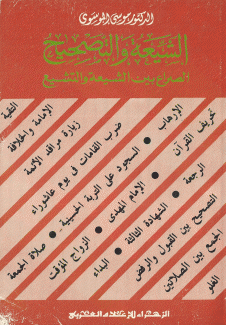 الدكتور موسى الموسوي
الشيعة والتصحيح
الصراع بين الشيعة والتشيع
التقية
الإمامة والخلافة
زيارة مراقد الأئمة
ضرب القامات في يوم عاشوراء
السجود على التربة الحسينية
صلاة الجمعة
الإرهاب
الإمام المهدي
الشهادة الثالثة
الزواج المؤقت
تحريف القرآن
الرجعة
البداء
التصحيح بين القبول والرفض
الجمع بين الصلاتين
الغلو
الزهراء للإعلام العربي